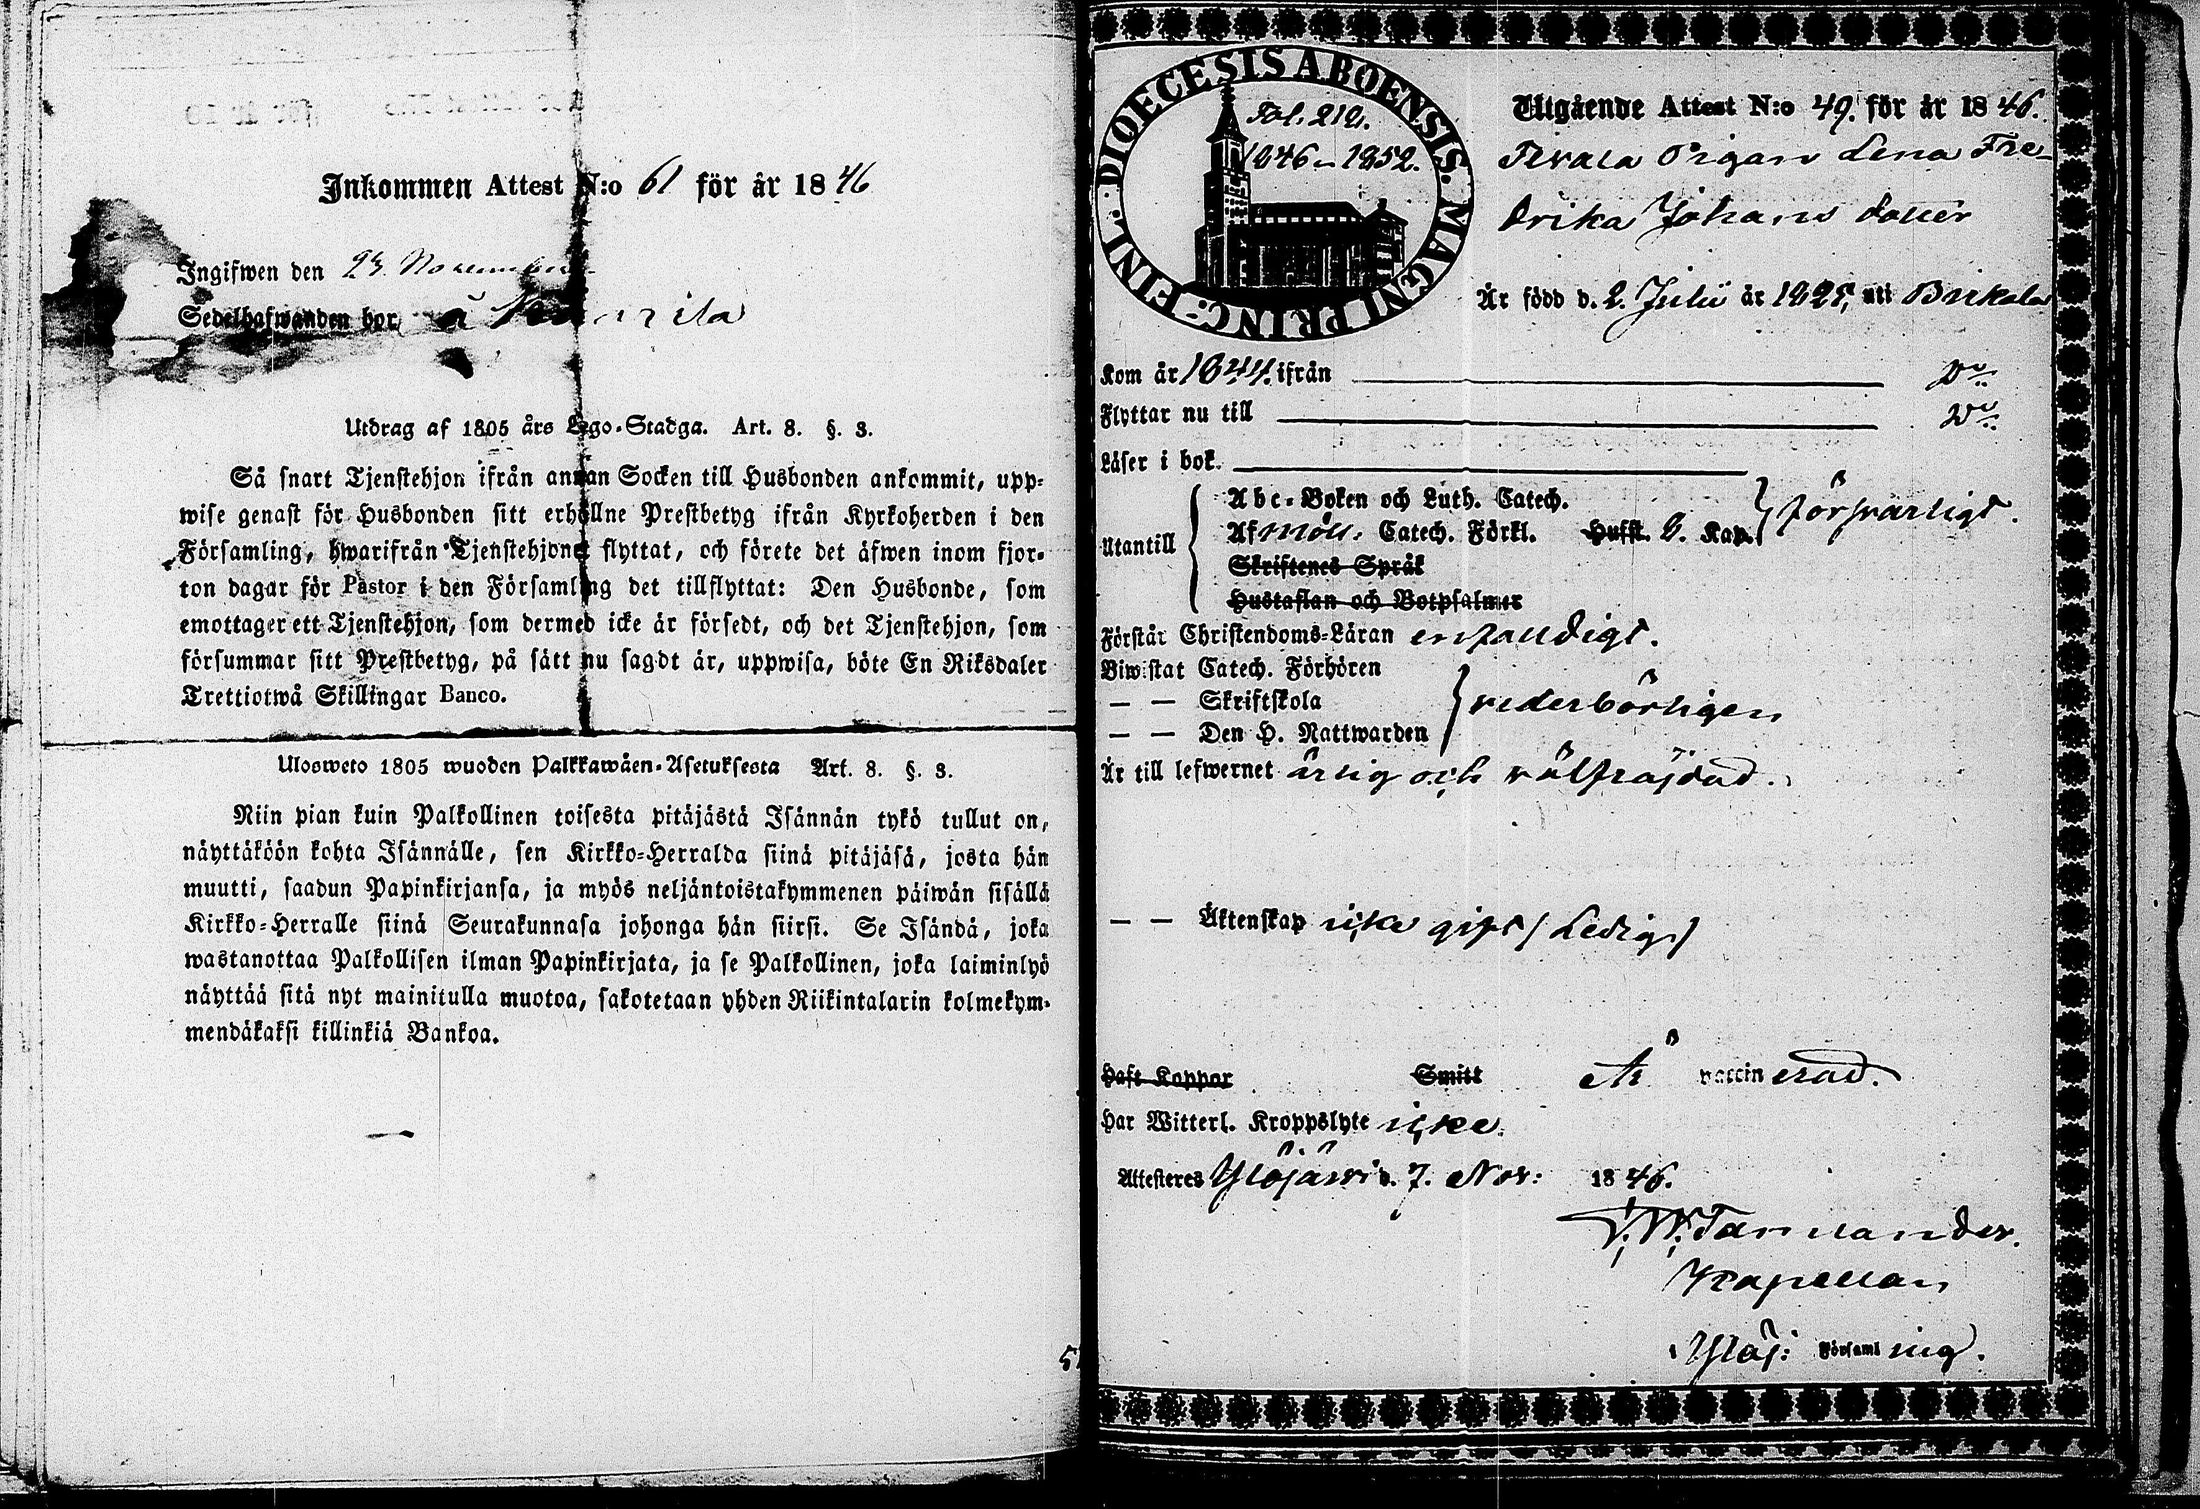 Inkommen Attest N:o 61 för år 1846
Ingifwen den 23. November
Sedelhafwanden bor å
Utdrag af 1805 års Lego-Stadga. Art. 8. §. 3.
Så snart Tjenstehjon ifrån annan Socken till Husbonden ankommit, upp-
wise genast för Husbonden sitt erhållne Prestbetyg ifrån Kyrkoherden i den
Församling, hwarifrån Tjenstehjonet flyttat, och förete det äfwen inom fjor-
ton dagar för Pastor i den Församling det tillflyttat: Den Husbonde, som
emottager ett Tjenstehjon, som dermed icke är försedt, och det Tjenstehjon, som
försummar sitt Prestbetyg, på sätt nu sagdt är, uppwisa, böte En Riksdaler
Trettiotwå Skillingar Banco.
Ulosweto 1805 wuoden Palkkawäen-Asetuksesta Art. 8. §. 3.
Niin pian kuin Palkollinen toisesta pitäjästä Isännän tykö tullut on,
näyttäköön kohta Isännälle, sen Kirkko-Herralda siinä pitäjäsä, josta hän
muutti, saadun Papinkirjansa, ja myös neljäntoistakymmenen päiwän sisällä
Kirkko-Herralle siinä Seurakunnasa johonga hän siirsi. Se Isändä, joka
wastanottaa Palkollisen ilman Papinkirjata, ja se Palkollinen, joka laiminlyö
näyttää sitä nyt mainitulla muotoa, sakotetaan yhden Riikintalarin kolmekym-
mendäkaksi killinkiä Bankoa.
DIOECESIS ABOENSIS. MAGNI PRINC: FINL.
Fol. 212.
1846-1852.
Utgående Attest N:o 49. för år 1846.
Pigan Lena Fre-
drika Johans dotter
Är född d. 2. Julii år 1825, uti Birkala
Kom år 1844. ifrån Do
Flyttar nu till Do
Läser i bok.
Utantill
Abc-Boken och Luth. Catech.
Af Möll. Catech. Förkl. Husst. 8. Kap. försvarligt.
Skriftenes Språk
Hustaflan och Botpsalmer
Förstår Christendoms-Läran enfaldigt.
Biwistat Catech. Förhören
— — Skriftskola
— — Den H. Nattwarden
vederbörligen
Är till lefwernet ärlig och välfräjdad.
— — Äktenskap icke gift (Ledig)
Haft Koppor Smitt Är vaccinerad.
Har Witterl. Kroppslyte icke.
Attesteres Ylöjärvi d. 7. Nov: 1846.
Tamlander.
Kapellan
Ylöj: Församling.